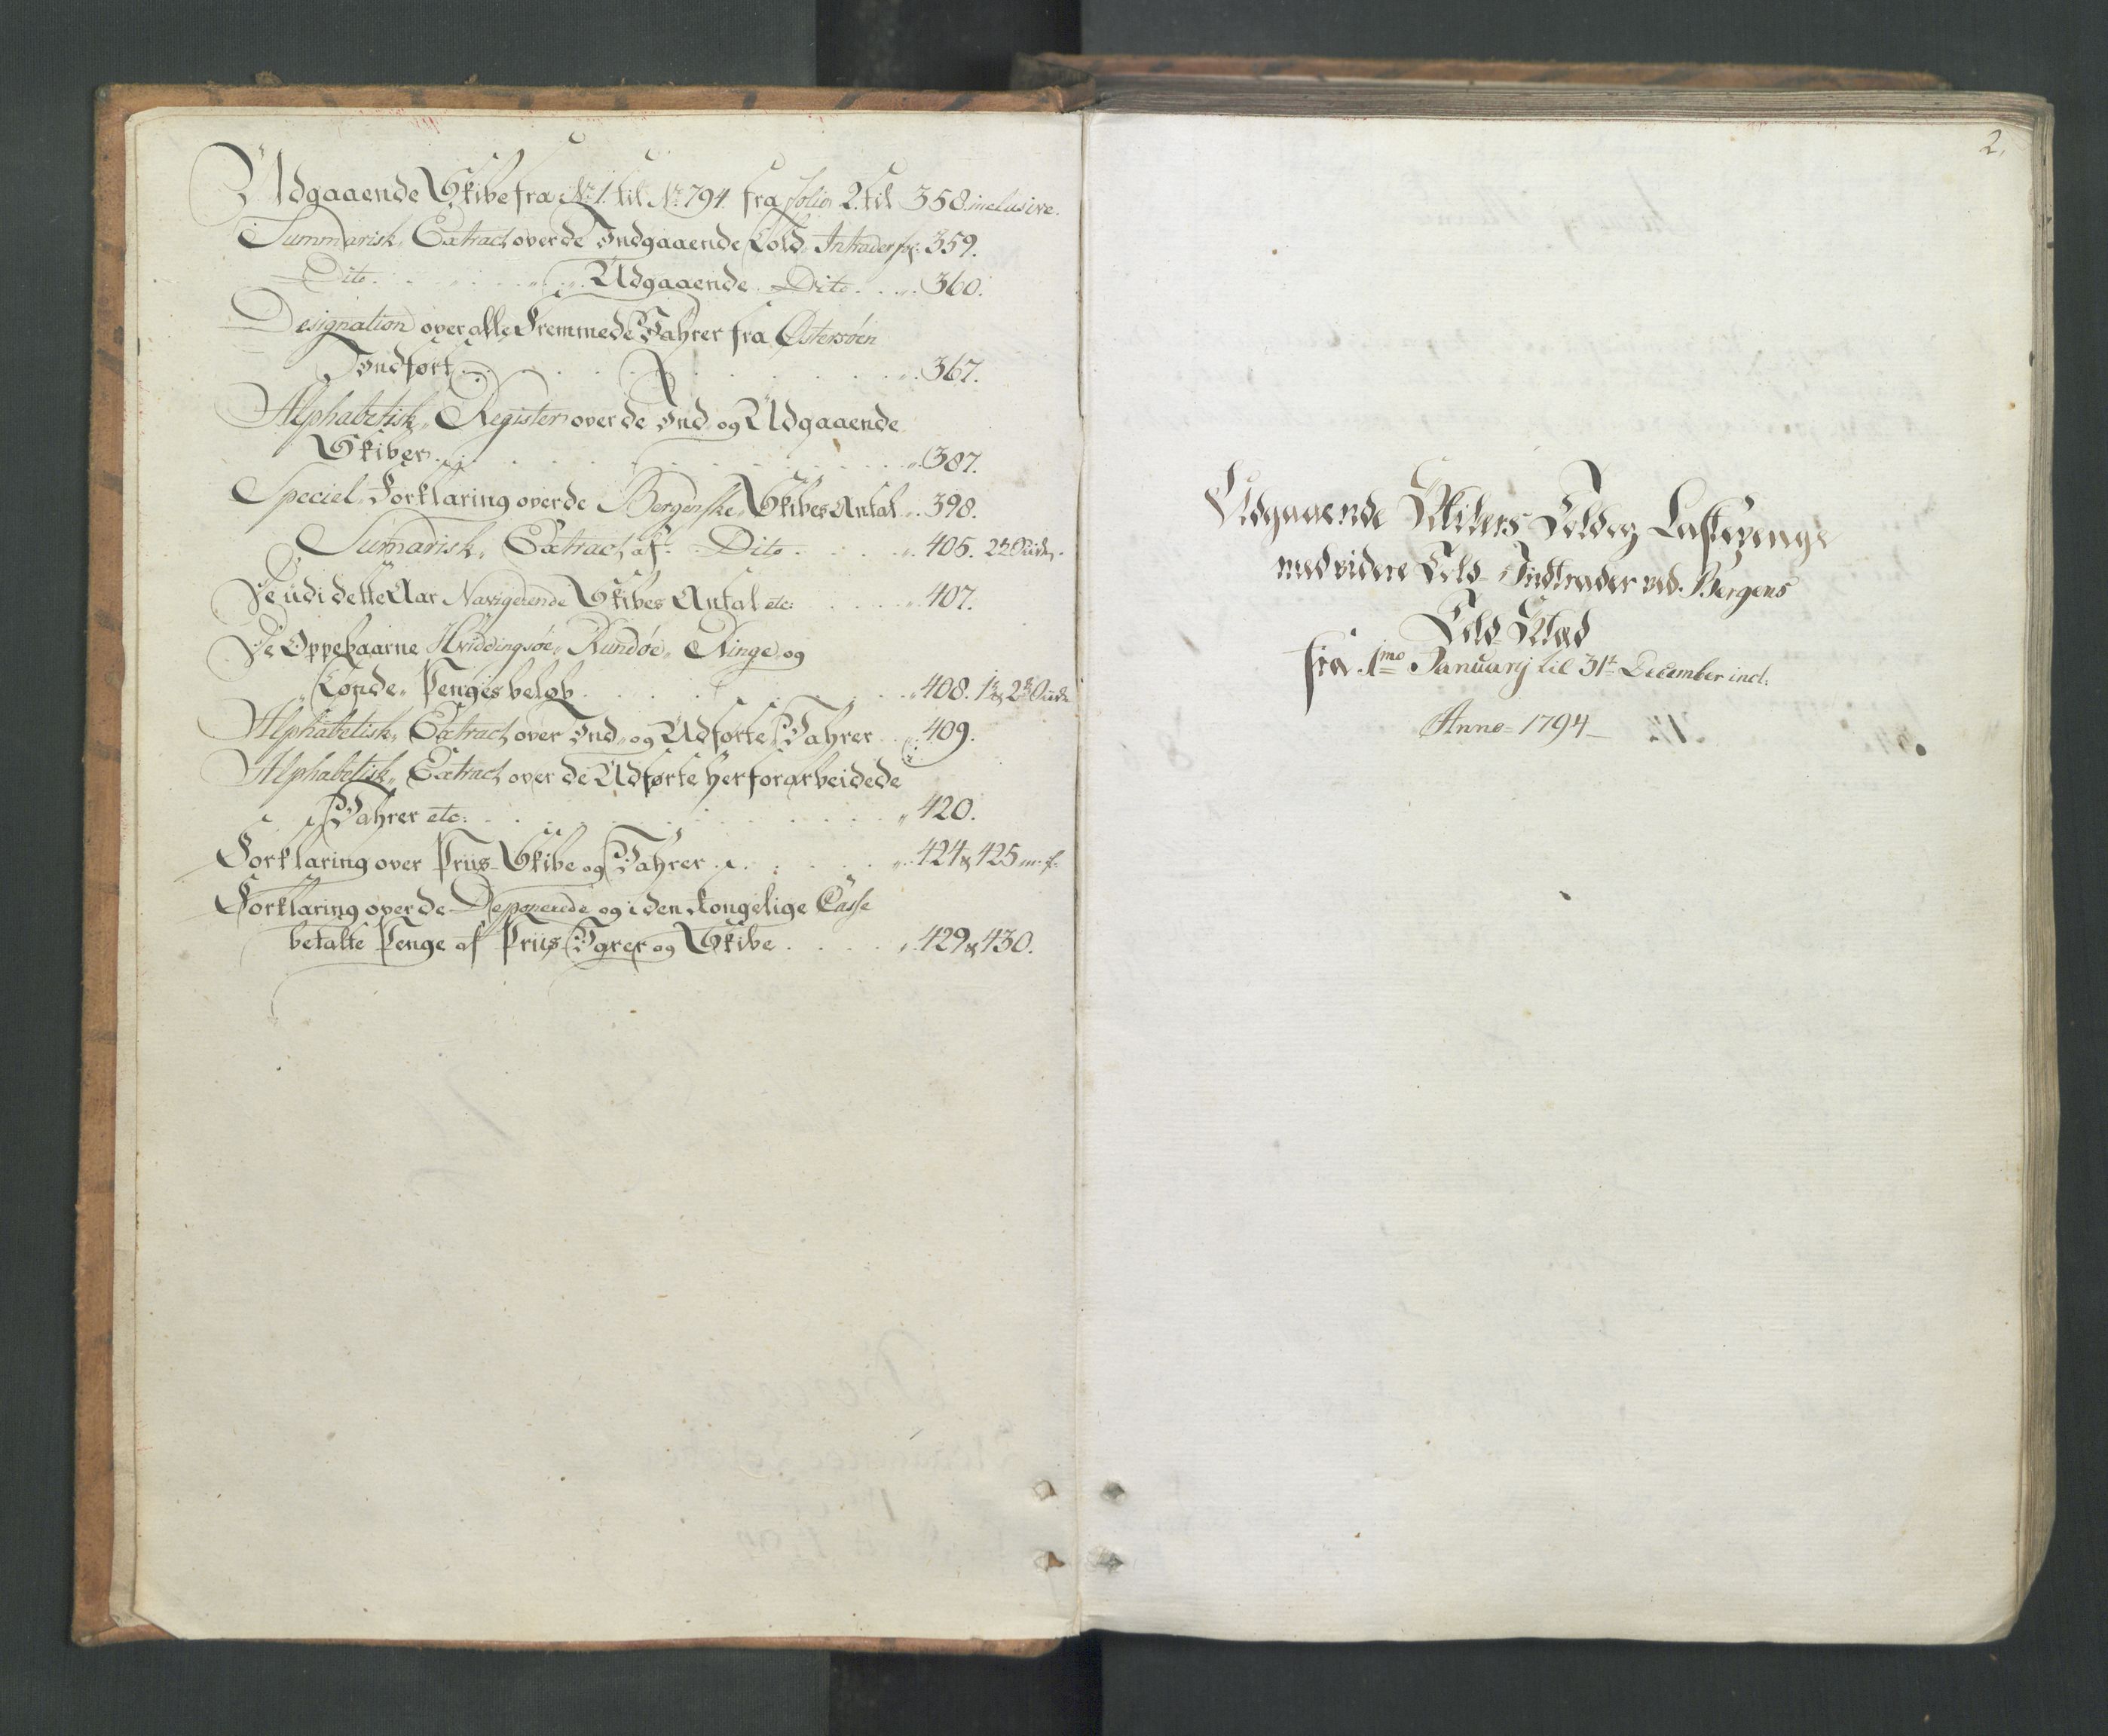 Udgaaende Skibe fra No. 1. til No. 794. fra folio 2. til 358. inclusive.
Summarisk Extract over de Indgaaende Told Intrader fol: 359.
Dito . . . . . Udgaaende Dito . . . 360.
Designation over alle Fremmede Vahrer fra Østersøen
Indført . . . . . . . 367.
Alphabetisk Register over de Ind og Udgaaende
Skiber . . . . . . . 387.
Speciel Forklaring over de Bergenske Skibes Antal . . 398.
Sumarisk Extract af Dito . . . . 405.
De udi dette Aar Navigerende Skibes Antal etc: . . . . 407.
De Oppebaarne Hviddingsøe, Rundøe, Ringe og
Tønde Penges beløb . . . . . . 408.
Alphabetisk Extract over Ind og Udførte Vahrer . . 409.
Alphabetisk Extract over de Udførte her forarbeidede
Vahrer etc: . . . . . . . 420.
Forklaring over Priis-Skibe og Vahrer . . . . . 424 & 425
Forklaring over de Deponerede og i den Kongelige Casse
betalte Penge af Priis Varer og Skibe . . . . 429 & 430.
2.
Udgaaende Skibers Told og Lastepenge
med videre Told-Indtrader ved Bergens
Told-Stad
fra 1mo January til 31te December incl:
Anno 1794